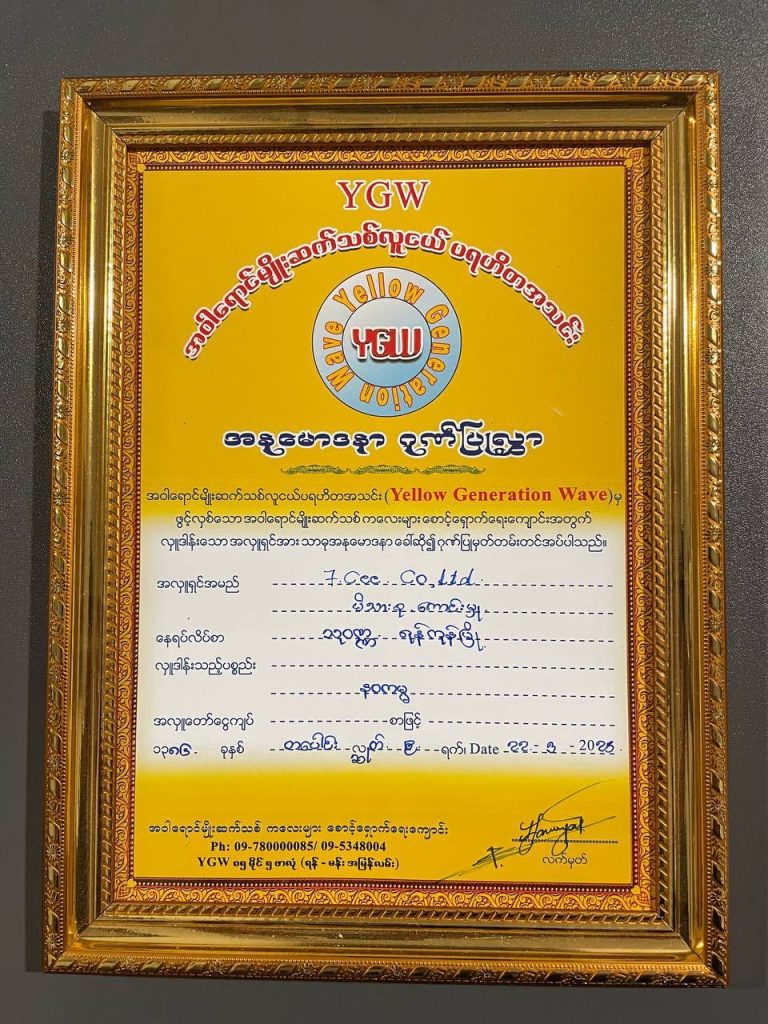 YGW
အဝါရောင်မျိုးဆက်သစ်လူငယ် ပရဟိတအသင်း
Yellow Generation Wave
YGW
အနုမောဒနာ ဂုဏ်ပြုလွှာ
အဝါရောင်မျိုးဆက်သစ်လူငယ်ပရဟိတအသင်း (Yellow Generation Wave) မှ
ဖွင့်လှစ်သော အဝါရောင်မျိုးဆက်သစ် ကလေးများ စောင့်ရှောက်ရေးကျောင်းအတွက်
လှူဒါန်းသော အလှူရှင်အား သာဓုအနုမောဒနာ ခေါ်ဆို၍ ဂုဏ်ပြုမှတ်တမ်းတင်အပ်ပါသည်။
အလှူရှင်အမည် 7 Cee Co,Ltd.
မိသားစု ကောင်းမှု
နေရပ်လိပ်စာ သုဝဏ္ဏ ရန်ကုန်မြို့
လှူဒါန်းသည့်ပစ္စည်း
နဝကမ္မ
အလှူတော်ငွေကျပ် စာဖြင့်
၁၃၈၆ ခုနှစ် တပေါင်း လ ရက်၊ Date
အဝါရောင်မျိုးဆက်သစ် ကလေးများ စောင့်ရှောက်ရေးကျောင်း
Ph: 09-780000085/ 09-5348004
YGW ၈၅ မိုင် ၅ ဖာလုံ (ရန် - မန်း အမြန်လမ်း)
လက်မှတ်